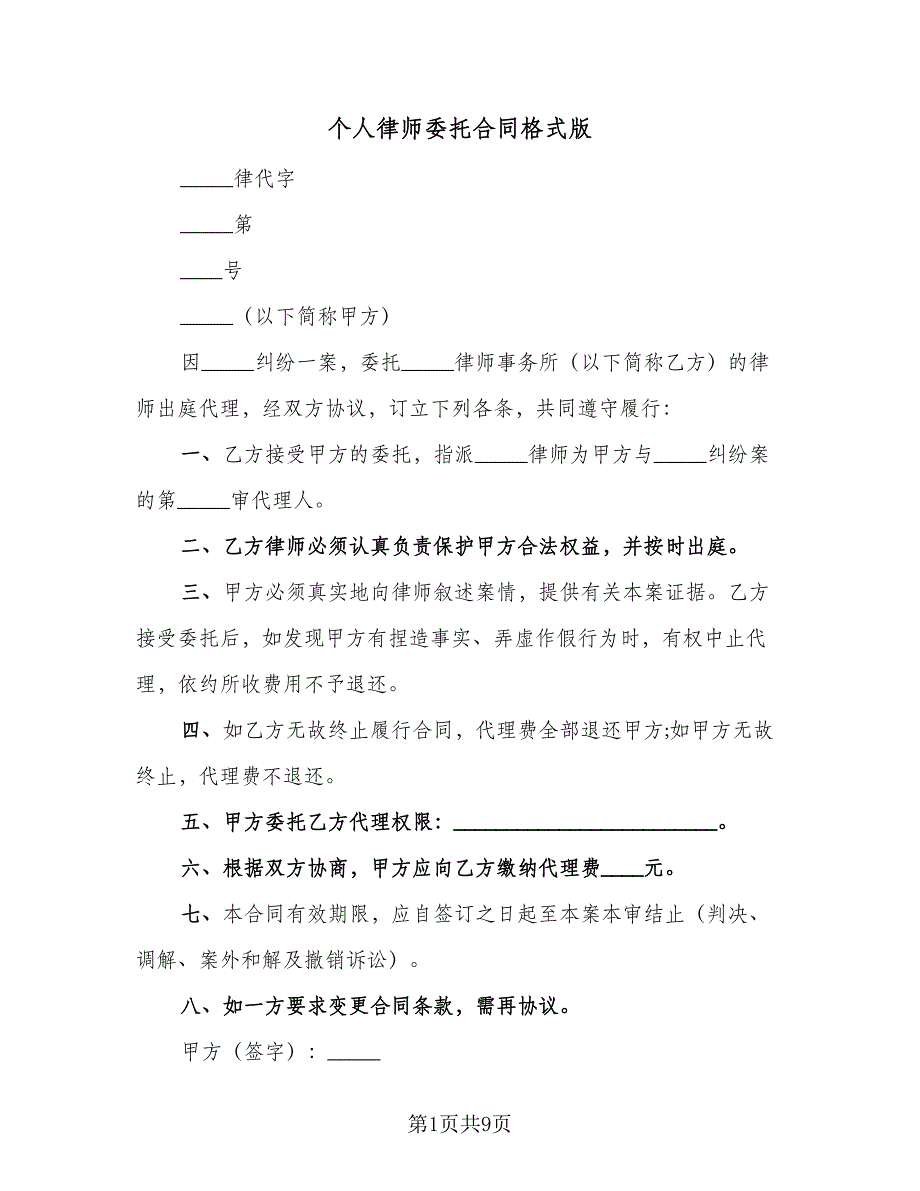 个人律师委托合同格式版
_____律代字
_____第
____号
_____（以下简称甲方）
因_____纠纷一案，委托_____律师事务所（以下简称乙方）的律
师出庭代理，经双方协议，订立下列各条，共同遵守履行：
一、乙方接受甲方的委托，指派_____律师为甲方与_____纠纷案
的第_____审代理人。
二、乙方律师必须认真负责保护甲方合法权益，并按时出庭。
三、甲方必须真实地向律师叙述案情，提供有关本案证据。乙方
接受委托后，如发现甲方有捏造事实、弄虚作假行为时，有权中止代
理，依约所收费用不予退还。
四、如乙方无故终止履行合同，代理费全部退还甲方;如甲方无故
终止，代理费不退还。
五、甲方委托乙方代理权限：_________________________。
六、根据双方协商，甲方应向乙方缴纳代理费____元。
七、本合同有效期限，应自签订之日起至本案本审结止（判决、
调解、案外和解及撤销诉讼）。
八、如一方要求变更合同条款，需再协议。
甲方（签字）：_____
第1页共9页